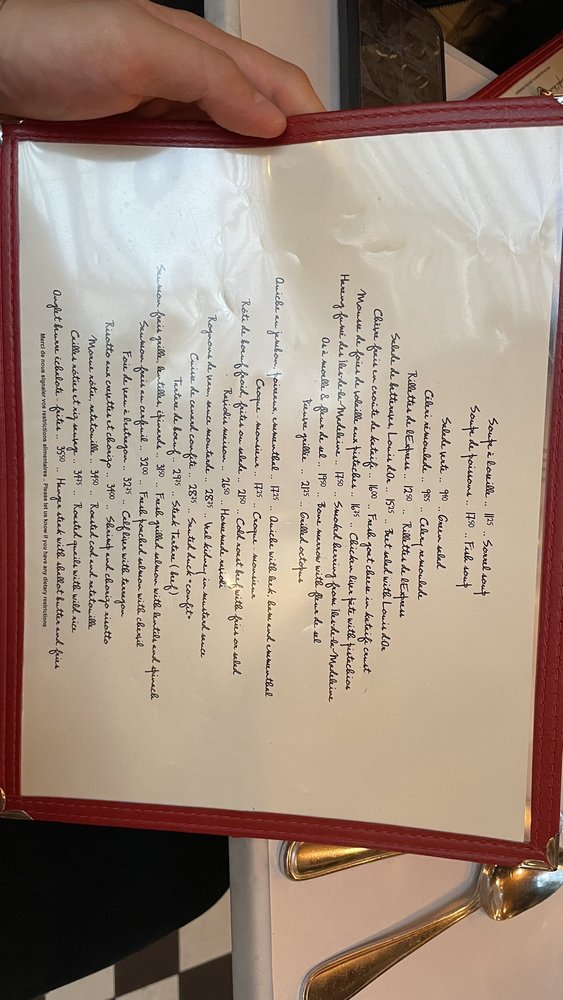 Soupe à l'oseille .. 11.75 .. Sorrel soup
Soupe de poissons .. 17.50 .. Fish soup
Salade verte .. 9.90 .. Green salad
Céleri rémoulade .. 9.85 .. Celery remoulade
Rillettes de l'Express .. 12.50 .. Rillettes de l'Express
Salade de betteraves, Louis d'Or .. 15.25 .. Beet salad with Louis d'Or
Chèvre frais en croûte de kataifi .. 16.00 .. Fresh goat cheese in kataifi crust
Mousse de foies de volaille aux pistaches .. 16.25 .. Chicken liver pâté with pistachios
Hareng fumé des Îles-de-la-Madeleine .. 17.50 .. Smoked herring from Îles-de-la-Madeleine
Os à moelle & fleur de sel .. 19.50 .. Bone marrow with fleur de sel
Pieuvre grillée .. 21.75 .. Grilled octopus
Quiche au jambon, poireaux, emmenthal .. 17.25 .. Quiche with leek, ham and emmenthal
Croque-monsieur .. 17.25 .. Croque-monsieur
Rôti de boeuf froid, frites ou salade .. 21.50 .. Cold roast beef with fries or salad
Raviolis maison .. 26.50 .. Homemade ravioli
Rognons de veau, sauce moutarde .. 28.75 .. Veal kidney in mustard sauce
Cuisse de canard confite .. 28.75 .. Sautéed duck "confit"
Tartare de boeuf .. 29.75 .. Steak Tartare (beef)
Saumon frais grillé, lentilles, épinards .. 31.50 .. Fresh grilled salmon with lentils and spinach
Saumon frais au cerfeuil .. 32.00 .. Fresh poached salmon with chervil
Foie de veau à l'estragon .. 32.75 .. Calf liver with tarragon
Risotto aux crevettes et chorizo .. 34.00 .. Shrimp and chorizo risotto
Morue rôtie, ratatouille .. 34.50 .. Roasted cod and ratatouille
Cailles rôties et riz sauvage .. 34.75 .. Roasted quails with wild rice
Onglet beurre échalote, frites .. 35.50 .. Hanger steak with shallot butter and fries
Merci de nous signaler vos restrictions alimentaires - Please let us know if you have any dietary restrictions